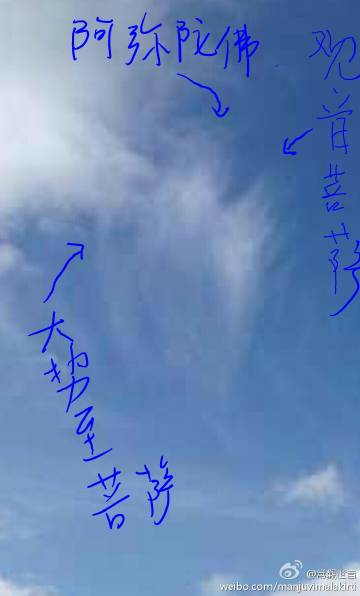 阿弥陀佛
观音菩萨
大势至菩萨
weibo.com/manjuvimalakirti